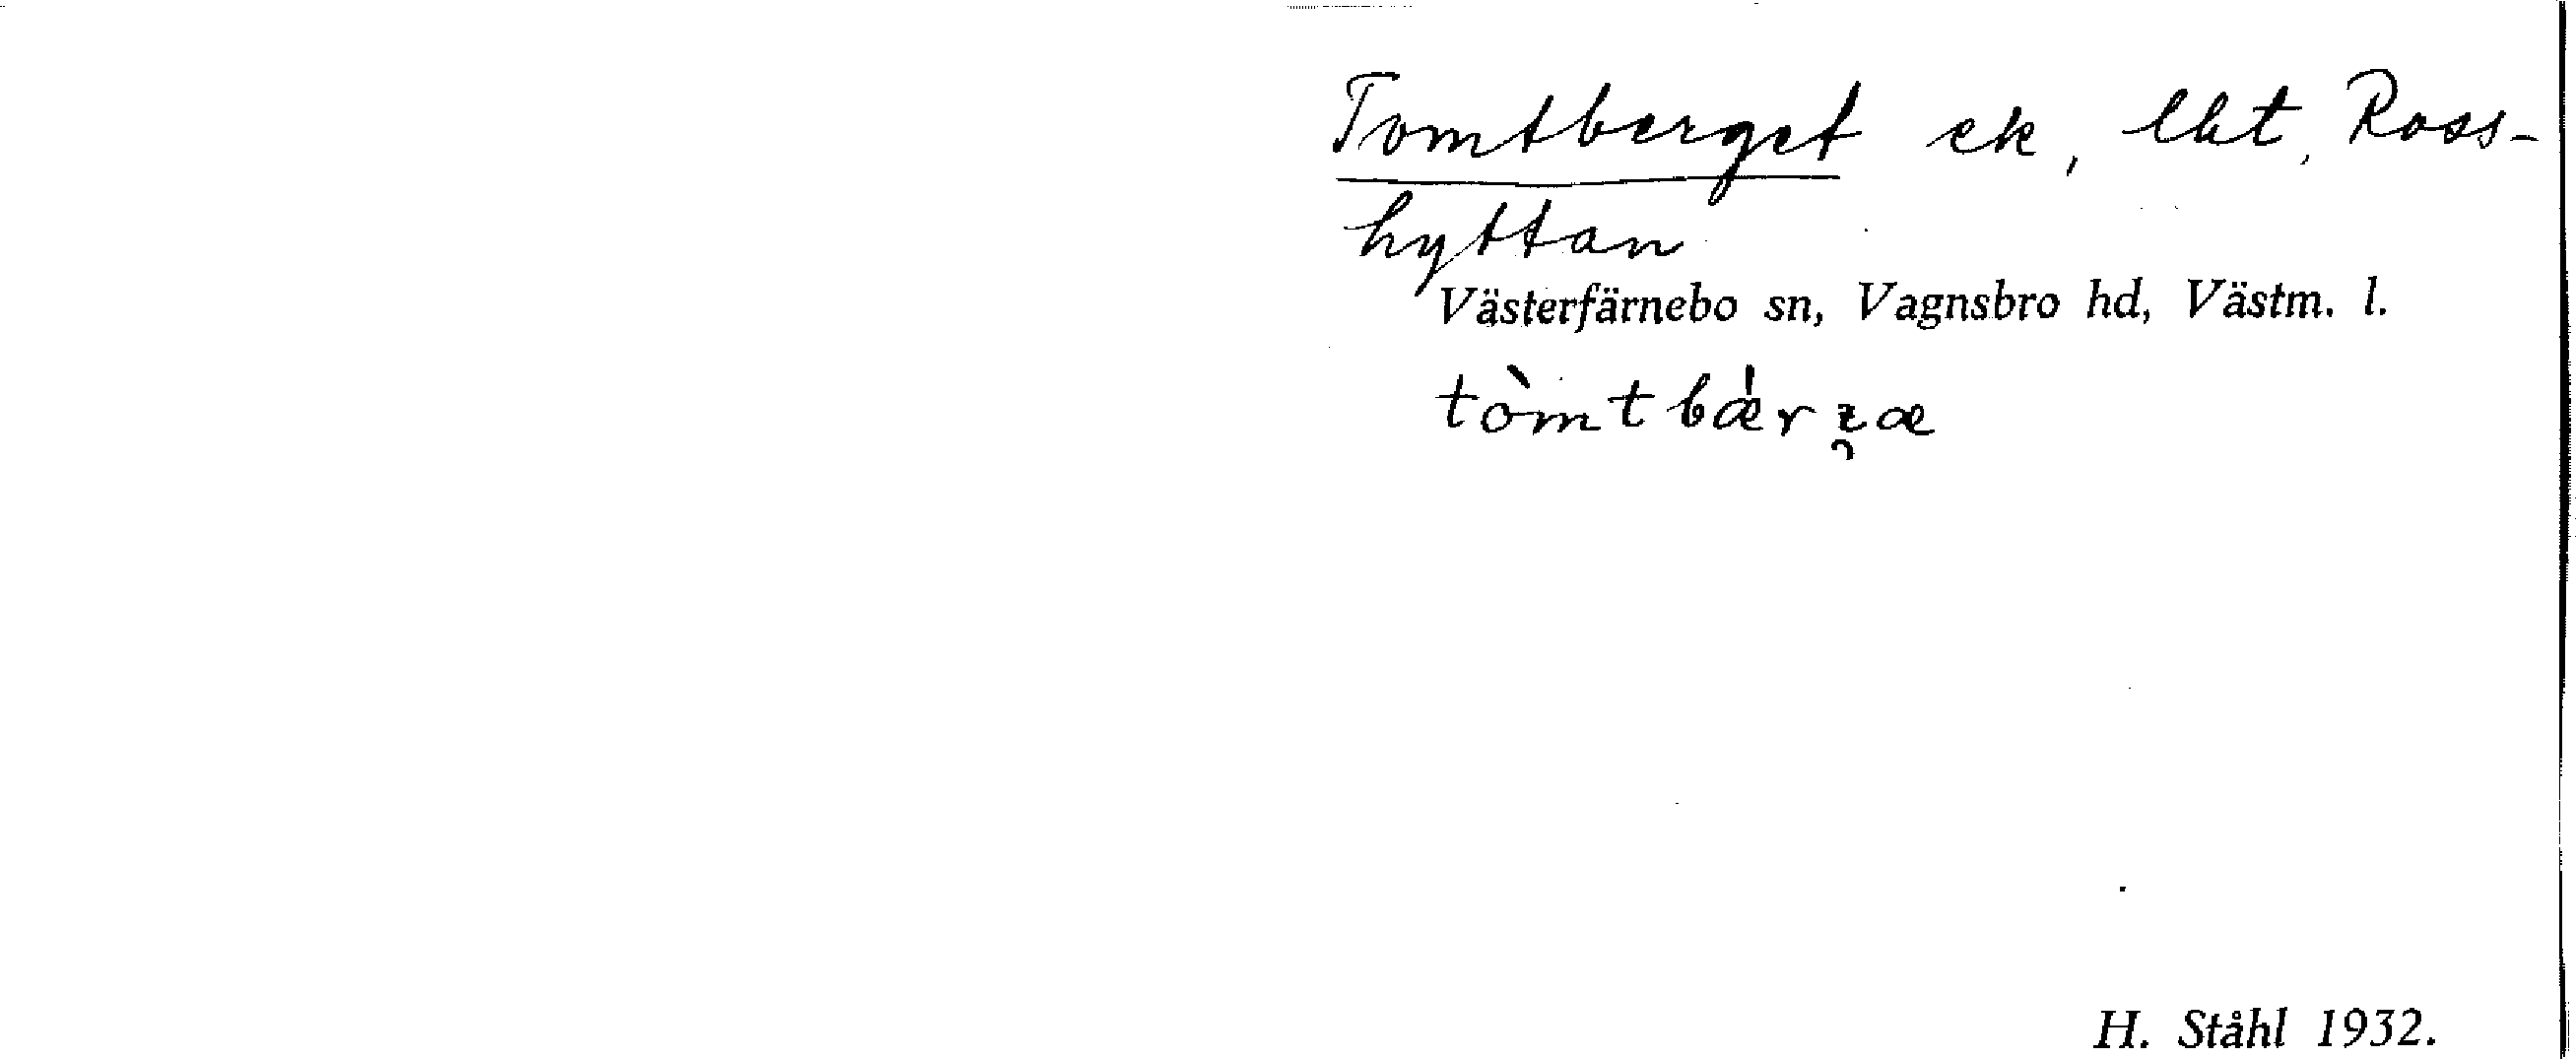 Tomtberget ek, lht, Ross-
hyttan
Västerfärnebo sn, Vagnsbro hd, Västm. l.
tòmtbæ̀rʐæ
H. Ståhl 1932.